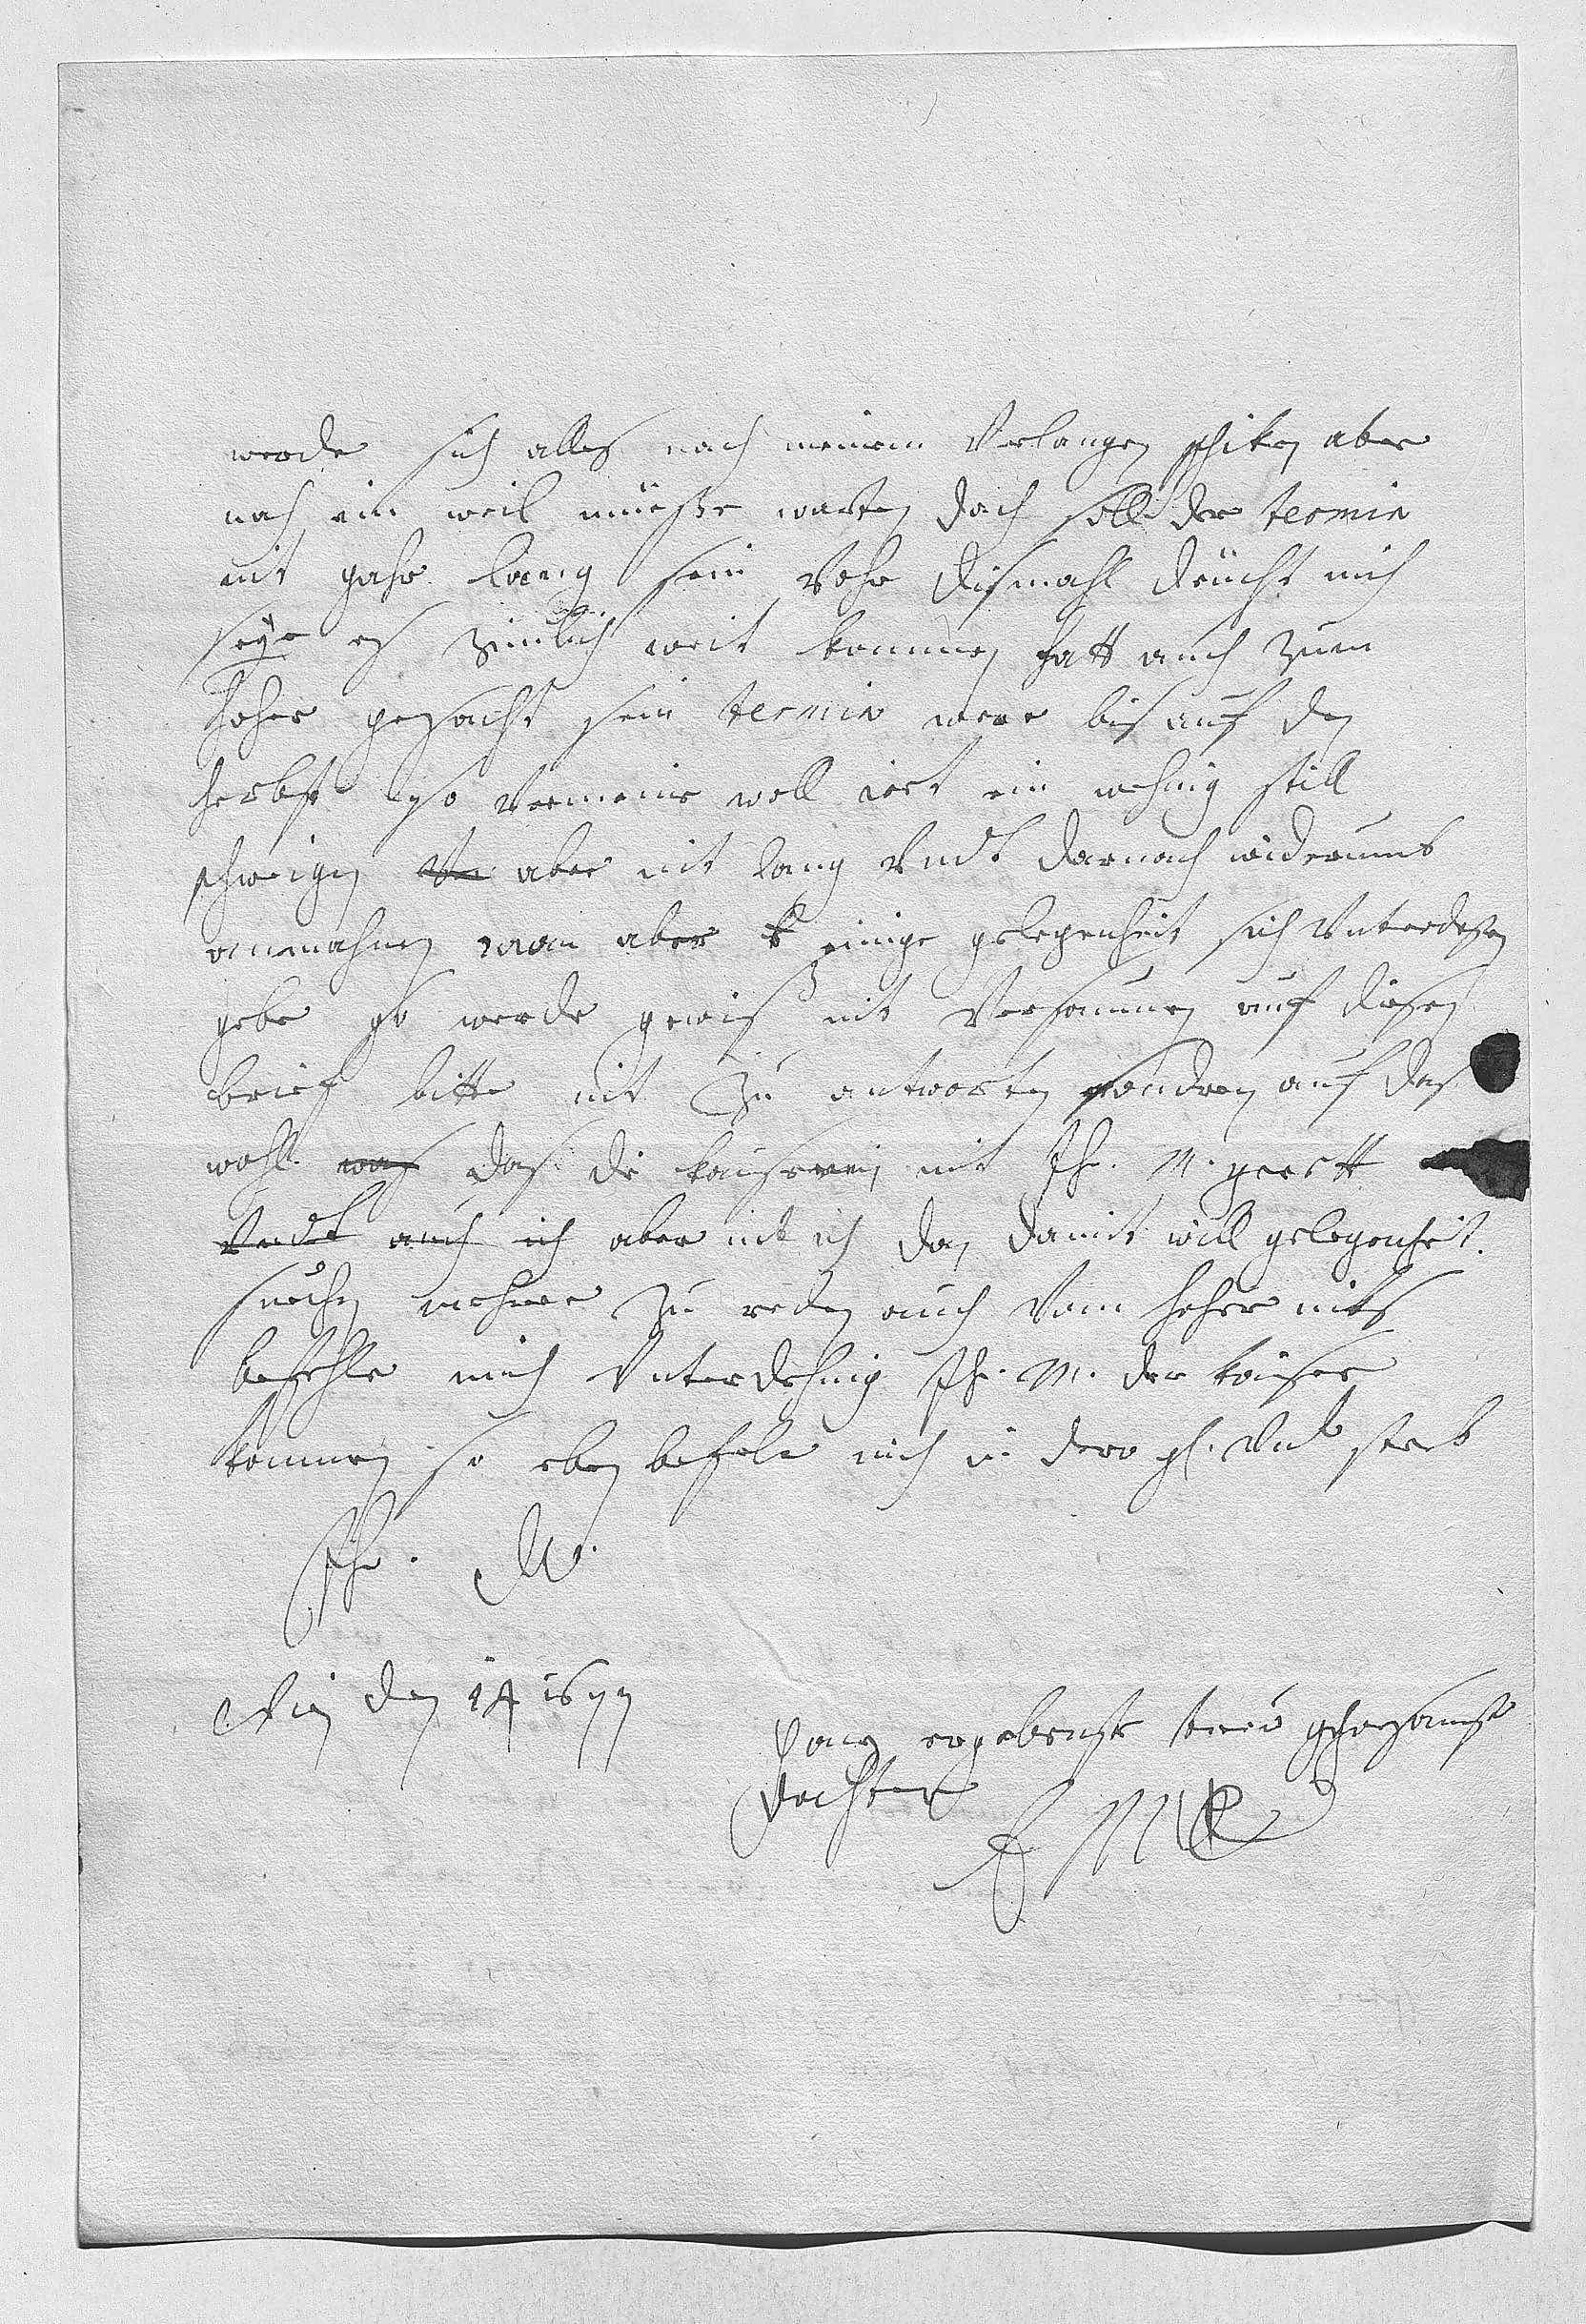 werde sich alles nach meinem verlangen schiken aber
noch ein weil müeßte warten doch soll der termin
nit gahr lang sein vohr dismahl deücht mich
seye es zimblich weit kommen hatt auch zum
hoher gesacht sein termin were bis auf den
herbst also vermeine woll iezt ein wehnig still
schweigen aber nit lang vndt darnach widerumb
anmahnen wan aber einige gelegenheit sich vnterdesen
gebe so werde gewis nit versaumen auf disen
brief bitte nit zu antworten sondren auf das
wohl was das die kaiserin mit Ih. M. gerett
vndt auch ich aber nit ich dan damit will gelegenheit
suechen mehrer zu reden auch vom hoher nits
befehle mich vnterdehnig Ih. M. der kaiser
kommen so eben befele mich in dero gl. vnd sterb
Ih. M.
Wien den 14 1677
ganz ergebenste treü gehorsamst
dochter
E M R